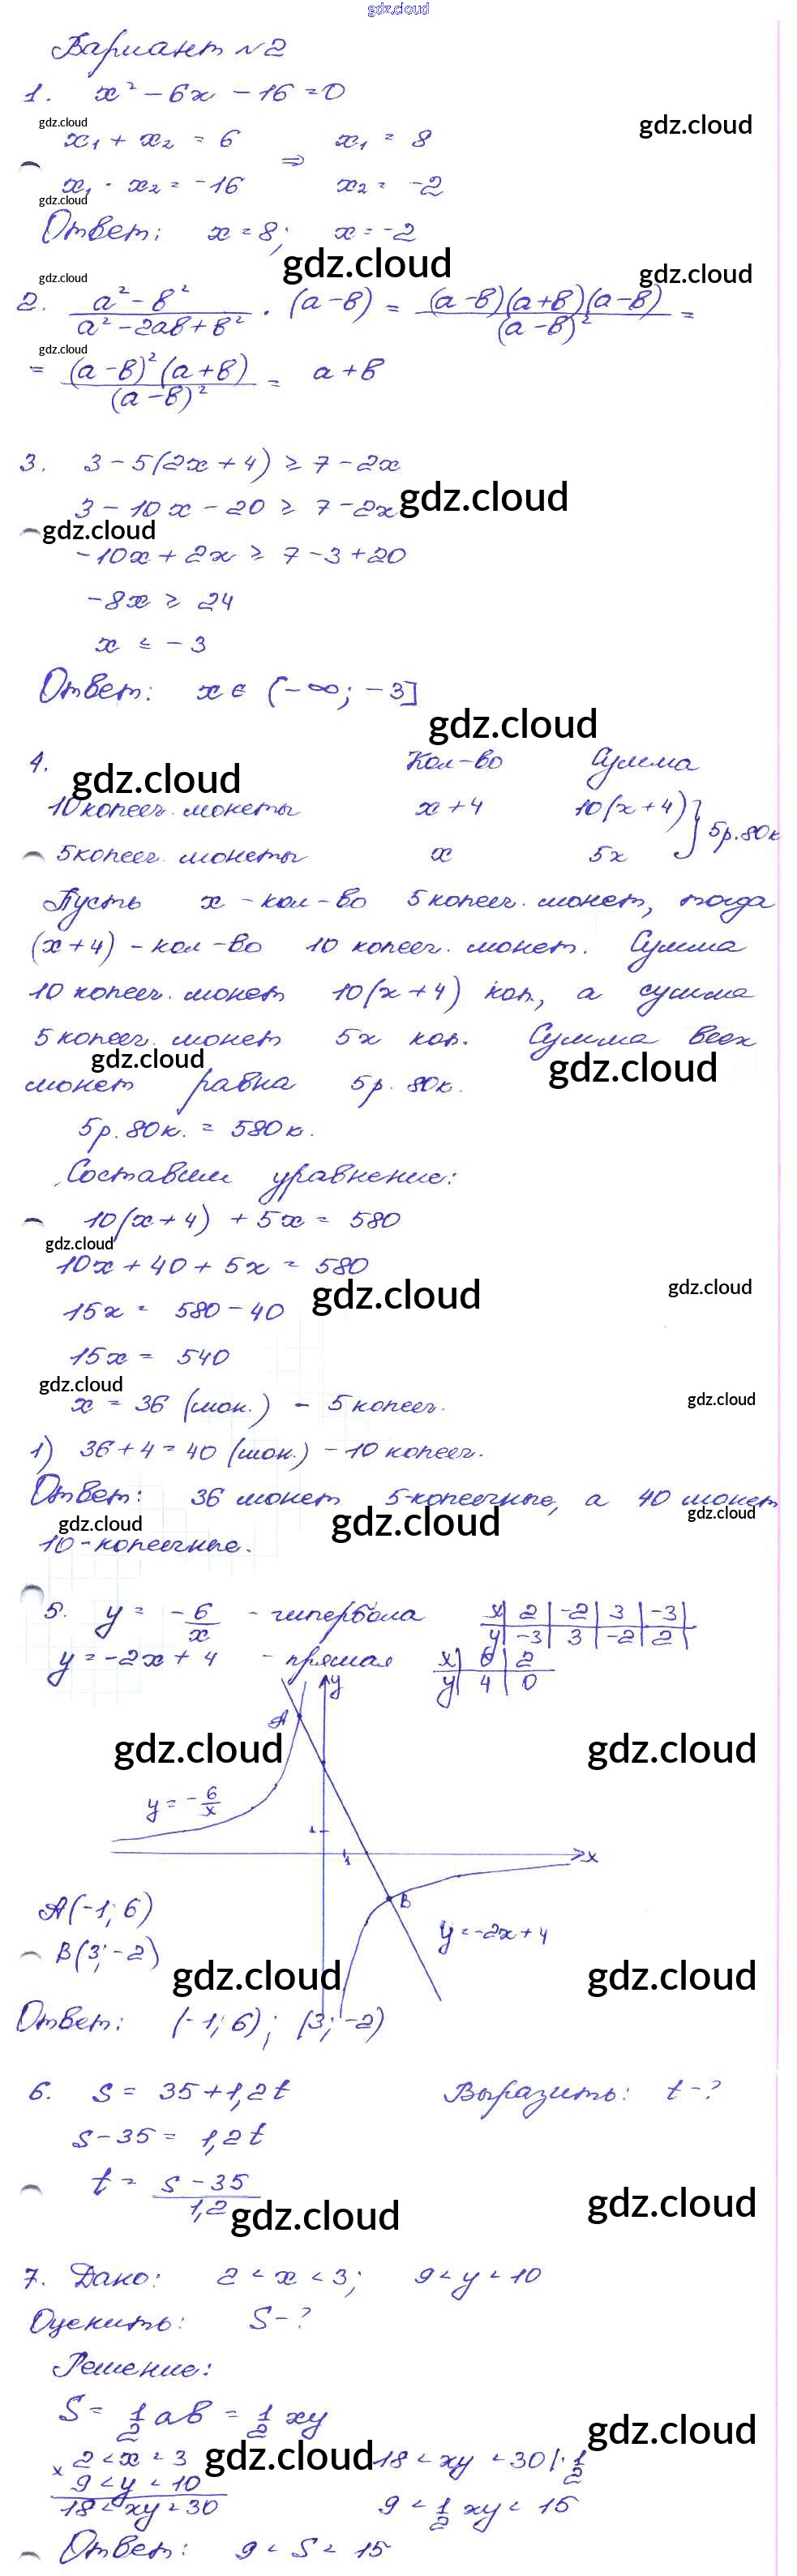 gdz.cloud
Вариант №2
1. x² - 6x - 16 = 0
gdz.cloud
x₁ + x₂ = 6 ⇒ x₁ = 8
gdz.cloud
x₁ · x₂ = -16 x₂ = -2
gdz.cloud
Ответ: x = 8; x = -2
gdz.cloud
gdz.cloud gdz.cloud
2. (a² - в²)/(a² - 2aв + в²) · (a - в) = ((a - в)(a + в)(a - в))/((a - в)²) =
gdz.cloud
= ((a - в)²(a + в))/((a - в)²) = a + в
3. 3 - 5(2x + 4) ≥ 7 - 2x
3 - 10x - 20 ≥ 7 - 2x gdz.cloud
gdz.cloud
-10x + 2x ≥ 7 - 3 + 20
-8x ≥ 24
x ≤ -3
Ответ: x ∈ (-∞; -3]
gdz.cloud
4. gdz.cloud Кол-во Сумма
10 копееч. монеты x + 4 10(x + 4) } 5р. 80к
5 копееч. монеты x 5x
Пусть x - кол-во 5 копееч. монет, тогда
(x + 4) - кол-во 10 копееч. монет. Сумма
10 копееч. монет 10(x + 4) коп, а сумма
5 копееч. монет 5x коп. Сумма всех
gdz.cloud gdz.cloud
монет равна 5р. 80к.
5р. 80к. = 580к.
Составим уравнение:
10(x + 4) + 5x = 580
gdz.cloud
10x + 40 + 5x = 580
gdz.cloud gdz.cloud
15x = 580 - 40
15x = 540
gdz.cloud gdz.cloud
x = 36 (мон.) - 5 копееч.
1) 36 + 4 = 40 (мон.) - 10 копееч.
Ответ: 36 монет 5-копеечные, а 40 монет
gdz.cloud gdz.cloud gdz.cloud
10-копеечные.
5. y = -6/x - гипербола x | 2 | -2 | 3 | -3 |
y | -3 | 3 | -2 | 2 |
y = -2x + 4 - прямая x | 0 | 2
y | 4 | 0
y
A
gdz.cloud gdz.cloud
y = -6/x
1
1 x
B
A(-1; 6)
y = -2x + 4
B(3; -2)
gdz.cloud gdz.cloud
Ответ: (-1; 6); (3; -2)
6. S = 35 + 1,2t Выразить: t - ?
S - 35 = 1,2t
t = (S - 35)/1,2
gdz.cloud gdz.cloud
7. Дано: 2 < x < 3; 9 < y < 10
Оценить: S - ?
Решение:
S = 1/2 aв = 1/2 xy
gdz.cloud
× 2 < x < 3 gdz.cloud 18 < xy < 30 | · 1/2
9 < y < 10
18 < xy < 30 9 < 1/2 xy < 15
Ответ: 9 < S < 15